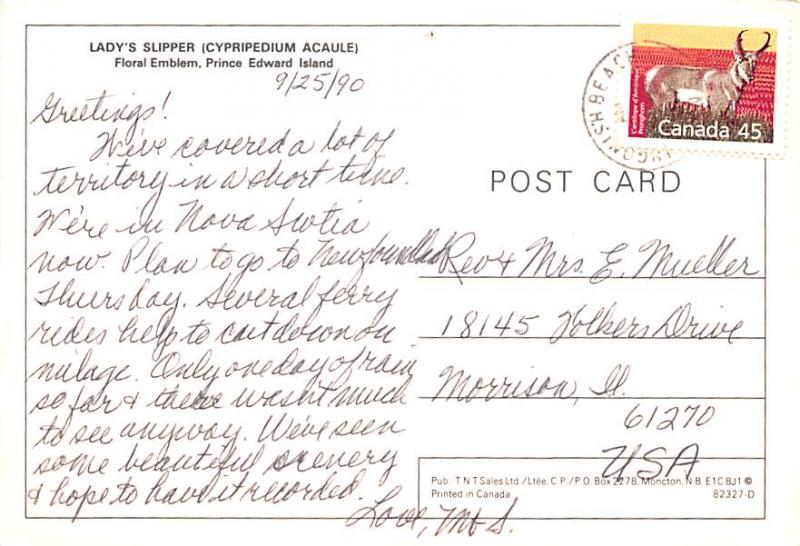 LADY'S SLIPPER (CYPRIPEDIUM ACAULE)
Floral Emblem, Prince Edward Island
9/25/90
Greetings!
We've covered a lot of
territory in a short time.
We're in Nova Scotia
now. Plan to go to Newfoundland
Thursday. Several ferry
rides help to cut down on
milage. Only one day of rain
so far & there wasn't much
to see anyway. We've seen
some beautiful scenery
& hope to have it recorded.
Love, M & S.
L'antilope d'Amérique
Pronghorn
Canada 45
BEACH
POST CARD
Rev & Mrs. E. Mueller
18145 Holkers Drive
Morrison, Il.
61270
USA
Pub. TNT Sales Ltd/Ltée, C.P./P.O. Box 2278, Moncton, N.B. E1C 8J1 ©
Printed in Canada
82327-D